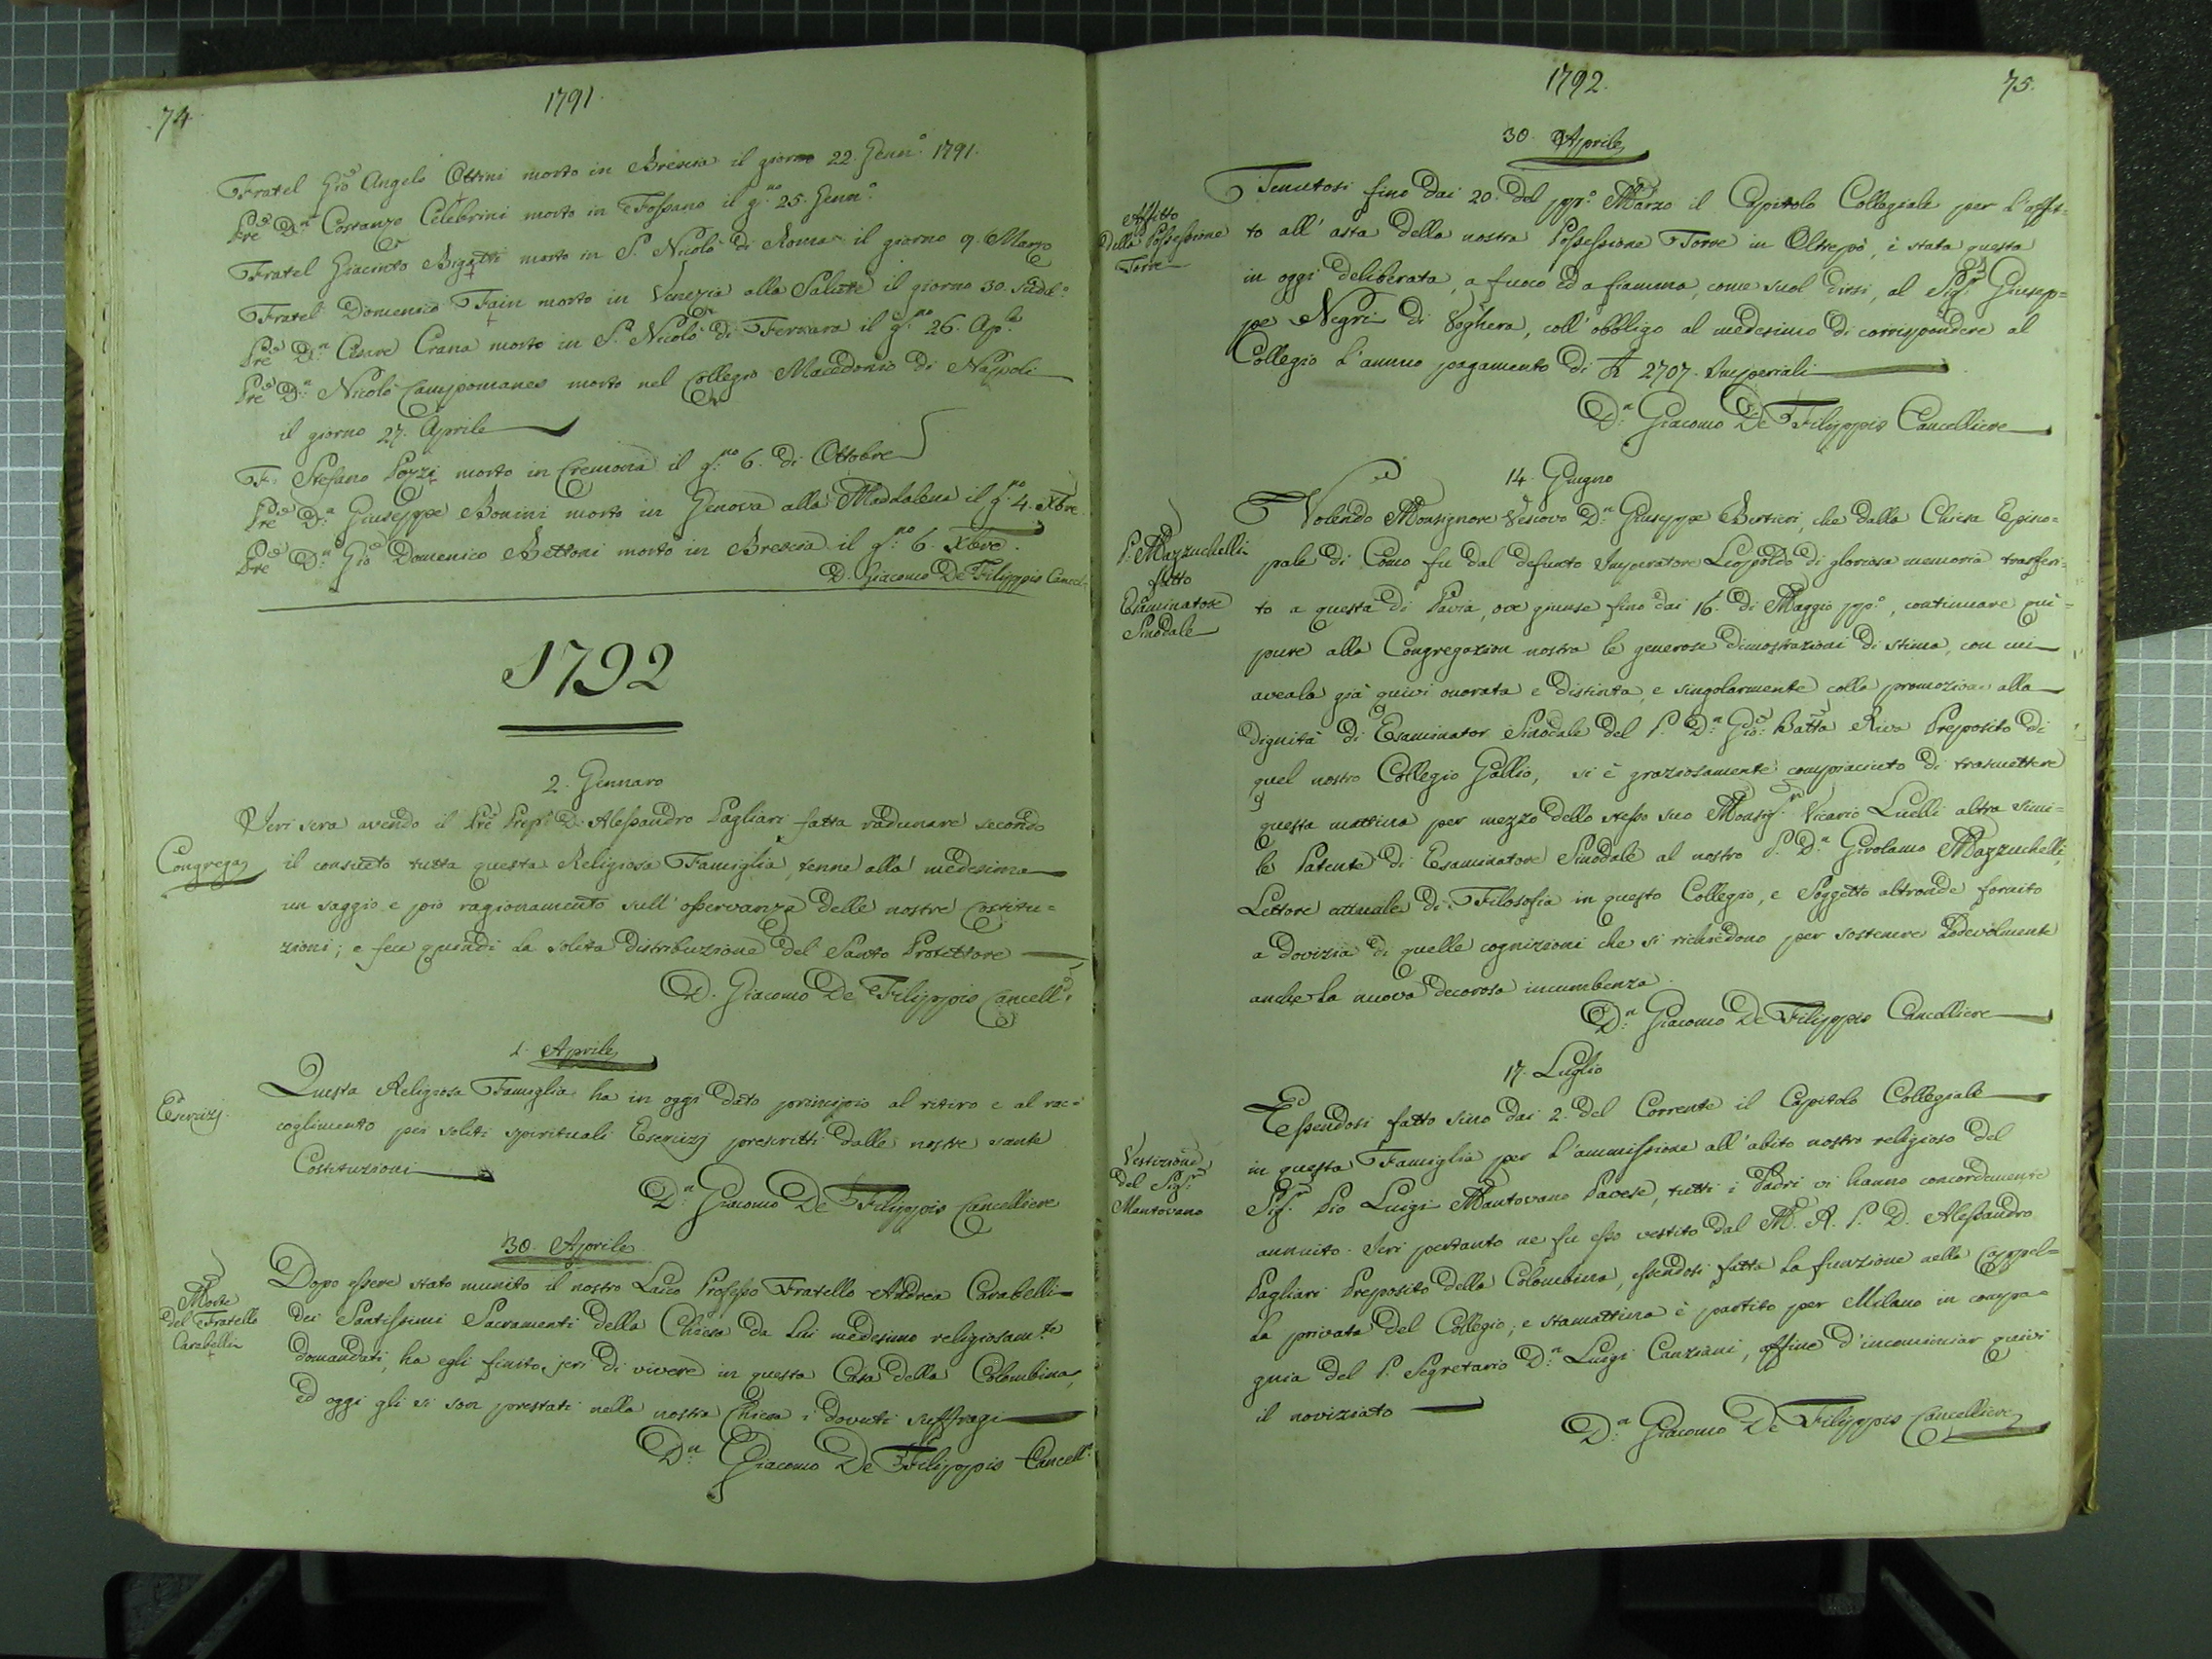 74.
1791.
Fratel Gio Angelo Ottini morto in Brescia il giorno 22. Genn.o 1791.
Pre D.n Costanzo Celebrini morto in Fossano il g.no 25. Genn.o
Fratel Giacinto Bigatti morto in S. Nicolò di Roma il giorno 9. Marzo
Fratel Domenico Fain morto in Venezia alla Salute il giorno 30. sudd.o
Pre D.n Cesare Crana morto in S. Nicolò di Ferrara il g.no 26. Ap.le
Pre D.n Nicolò Campomanes morto nel Collegio Macedonio di Napoli
il giorno 27. Aprile
F. Stefano Pozzi morto in Cremona il g.no 6. di Ottobre
Pre D.n Giuseppe Bonini morto in Genova alla Maddalena il g.no 4. Xbre.
Pre D.n Gio Domenico Bettoni morto in Brescia il g.no 6. Xbre.
D. Giacomo De Filippis Cancel.
1792
2. Gennaro
Congregaz
Jeri sera avendo il Pre Prep. D. Alessandro Pagliari fatta radunare secondo
il consueto tutta questa Religiosa Famiglia, tenne alla medesima
un saggio e pio ragionamento sull'osservanza delle nostre Costitu=
zioni; e fece quindi la solita distribuzione del Santo Protettore
D. Giacomo De Filippis Cancell.
1. Aprile
Esercizj.
Questa Religiosa Famiglia ha in oggi dato principio al ritiro e al rac=
coglimento pei soliti spirituali Esercizj prescritti dalle nostre sante
Costituzioni
D.n Giacomo De Filippis Cancelliere
30. Aprile
Morte
del Fratello
Carabelli
Dopo essere stato munito il nostro Laico Professo Fratello Andrea Carabelli
dei Santissimi Sacramenti della Chiesa da lui medesimo religiosam.te
domandati, ha egli finito jeri di vivere in questa Casa della Colombina,
ed oggi gli si son prestati nella nostra Chiesa i dovuti suffragi
D.n Giacomo De Filippis Cancell.e
1792.
75.
30. Aprile
Affitto
della Possessione
Torre
Tenutosi fino dai 20. del pp.o Marzo il Capitolo Collegiale per l'affit=
to all'asta della nostra Possessione Torre in Oltrepò, è stata questa
in oggi deliberata, a fuoco ed a fiamma, come suol dirsi, al Sig.r Giusep=
pe Negri di Voghera, coll'obbligo al medesimo di corrispondere al
Collegio l'annuo pagamento di £ 2707. Imperiali
D.n Giacomo De Filippis Cancelliere
14. Giugno
P. Mazzuchelli
fatto
Esaminatore
Sinodale
Volendo Monsignore Vescovo D.n Giuseppe Bertieri, che dalla Chiesa Episco=
pale di Como fu dal defunto Imperatore Leopoldo di gloriosa memoria trasferi=
to a questa di Pavia, ove giunse fino dai 16. di Maggio pp.o, continuare qui
pure alla Congregazion nostra le generose dimostrazioni di stima, con cui
aveala già quivi onorata e distinta, e singolarmente colla promozione alla
Dignità di Esaminator Sinodale del P. D.n Gio: Batta Riva Preposito di
quel nostro Collegio Gallio, si è graziosamente compiaciuto di trasmettere
questa mattina per mezzo dello stesso suo Monsig.r Vicario Luelli altra simi=
le Patente di Esaminatore Sinodale al nostro P. D.n Girolamo Mazzuchelli
Lettore attuale di Filosofia in questo Collegio, e Soggetto altronde fornito
a dovizia di quelle cognizioni che si richiedono per sostenere lodevolmente
anche la nuova decorosa incumbenza.
D.n Giacomo De Filippis Cancelliere
17. Luglio
Vestizione
del Sig.r
Mantovano
Essendosi fatto sino dai 2. del Corrente il Capitolo Collegiale
in questa Famiglia per l'ammissione all'abito nostro religioso del
Sig.r Pio Luigi Mantovano Pavese, tutti i Padri vi hanno concordemente
annuito. Jeri pertanto ne fu esso vestito dal M. R. P. D. Alessandro
Pagliari Preposito della Colombina, essendosi fatta la funzione nella Cappel=
la privata del Collegio; e stamattina è partito per Milano in compa=
gnia del P. Segretario D.n Luigi Canziani, affine d'incominciar quivi
il noviziato
D.n Giacomo De Filippis Cancelliere